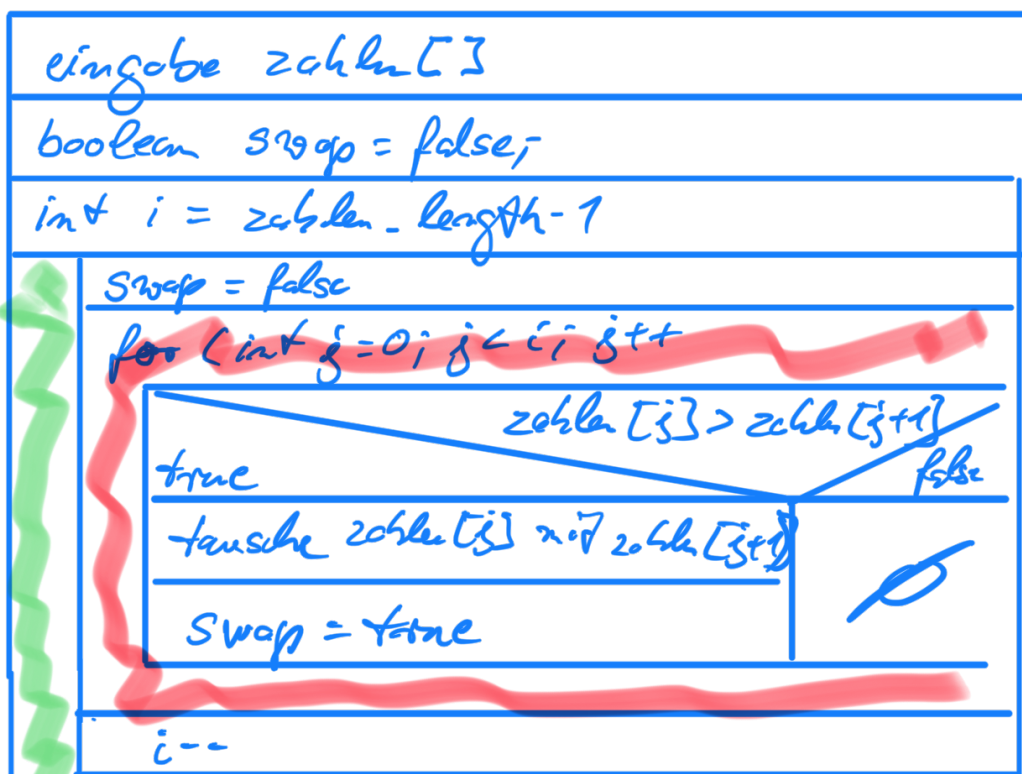 eingabe zahlen[]
boolean swap = false;
int i = zahlen.length-1
swap = false
for (int j=0; j<i; j++
zahlen[j]>zahlen[j+1]
true
false
tausche zahlen[j] mit zahlen[j+1]
swap = true
i--